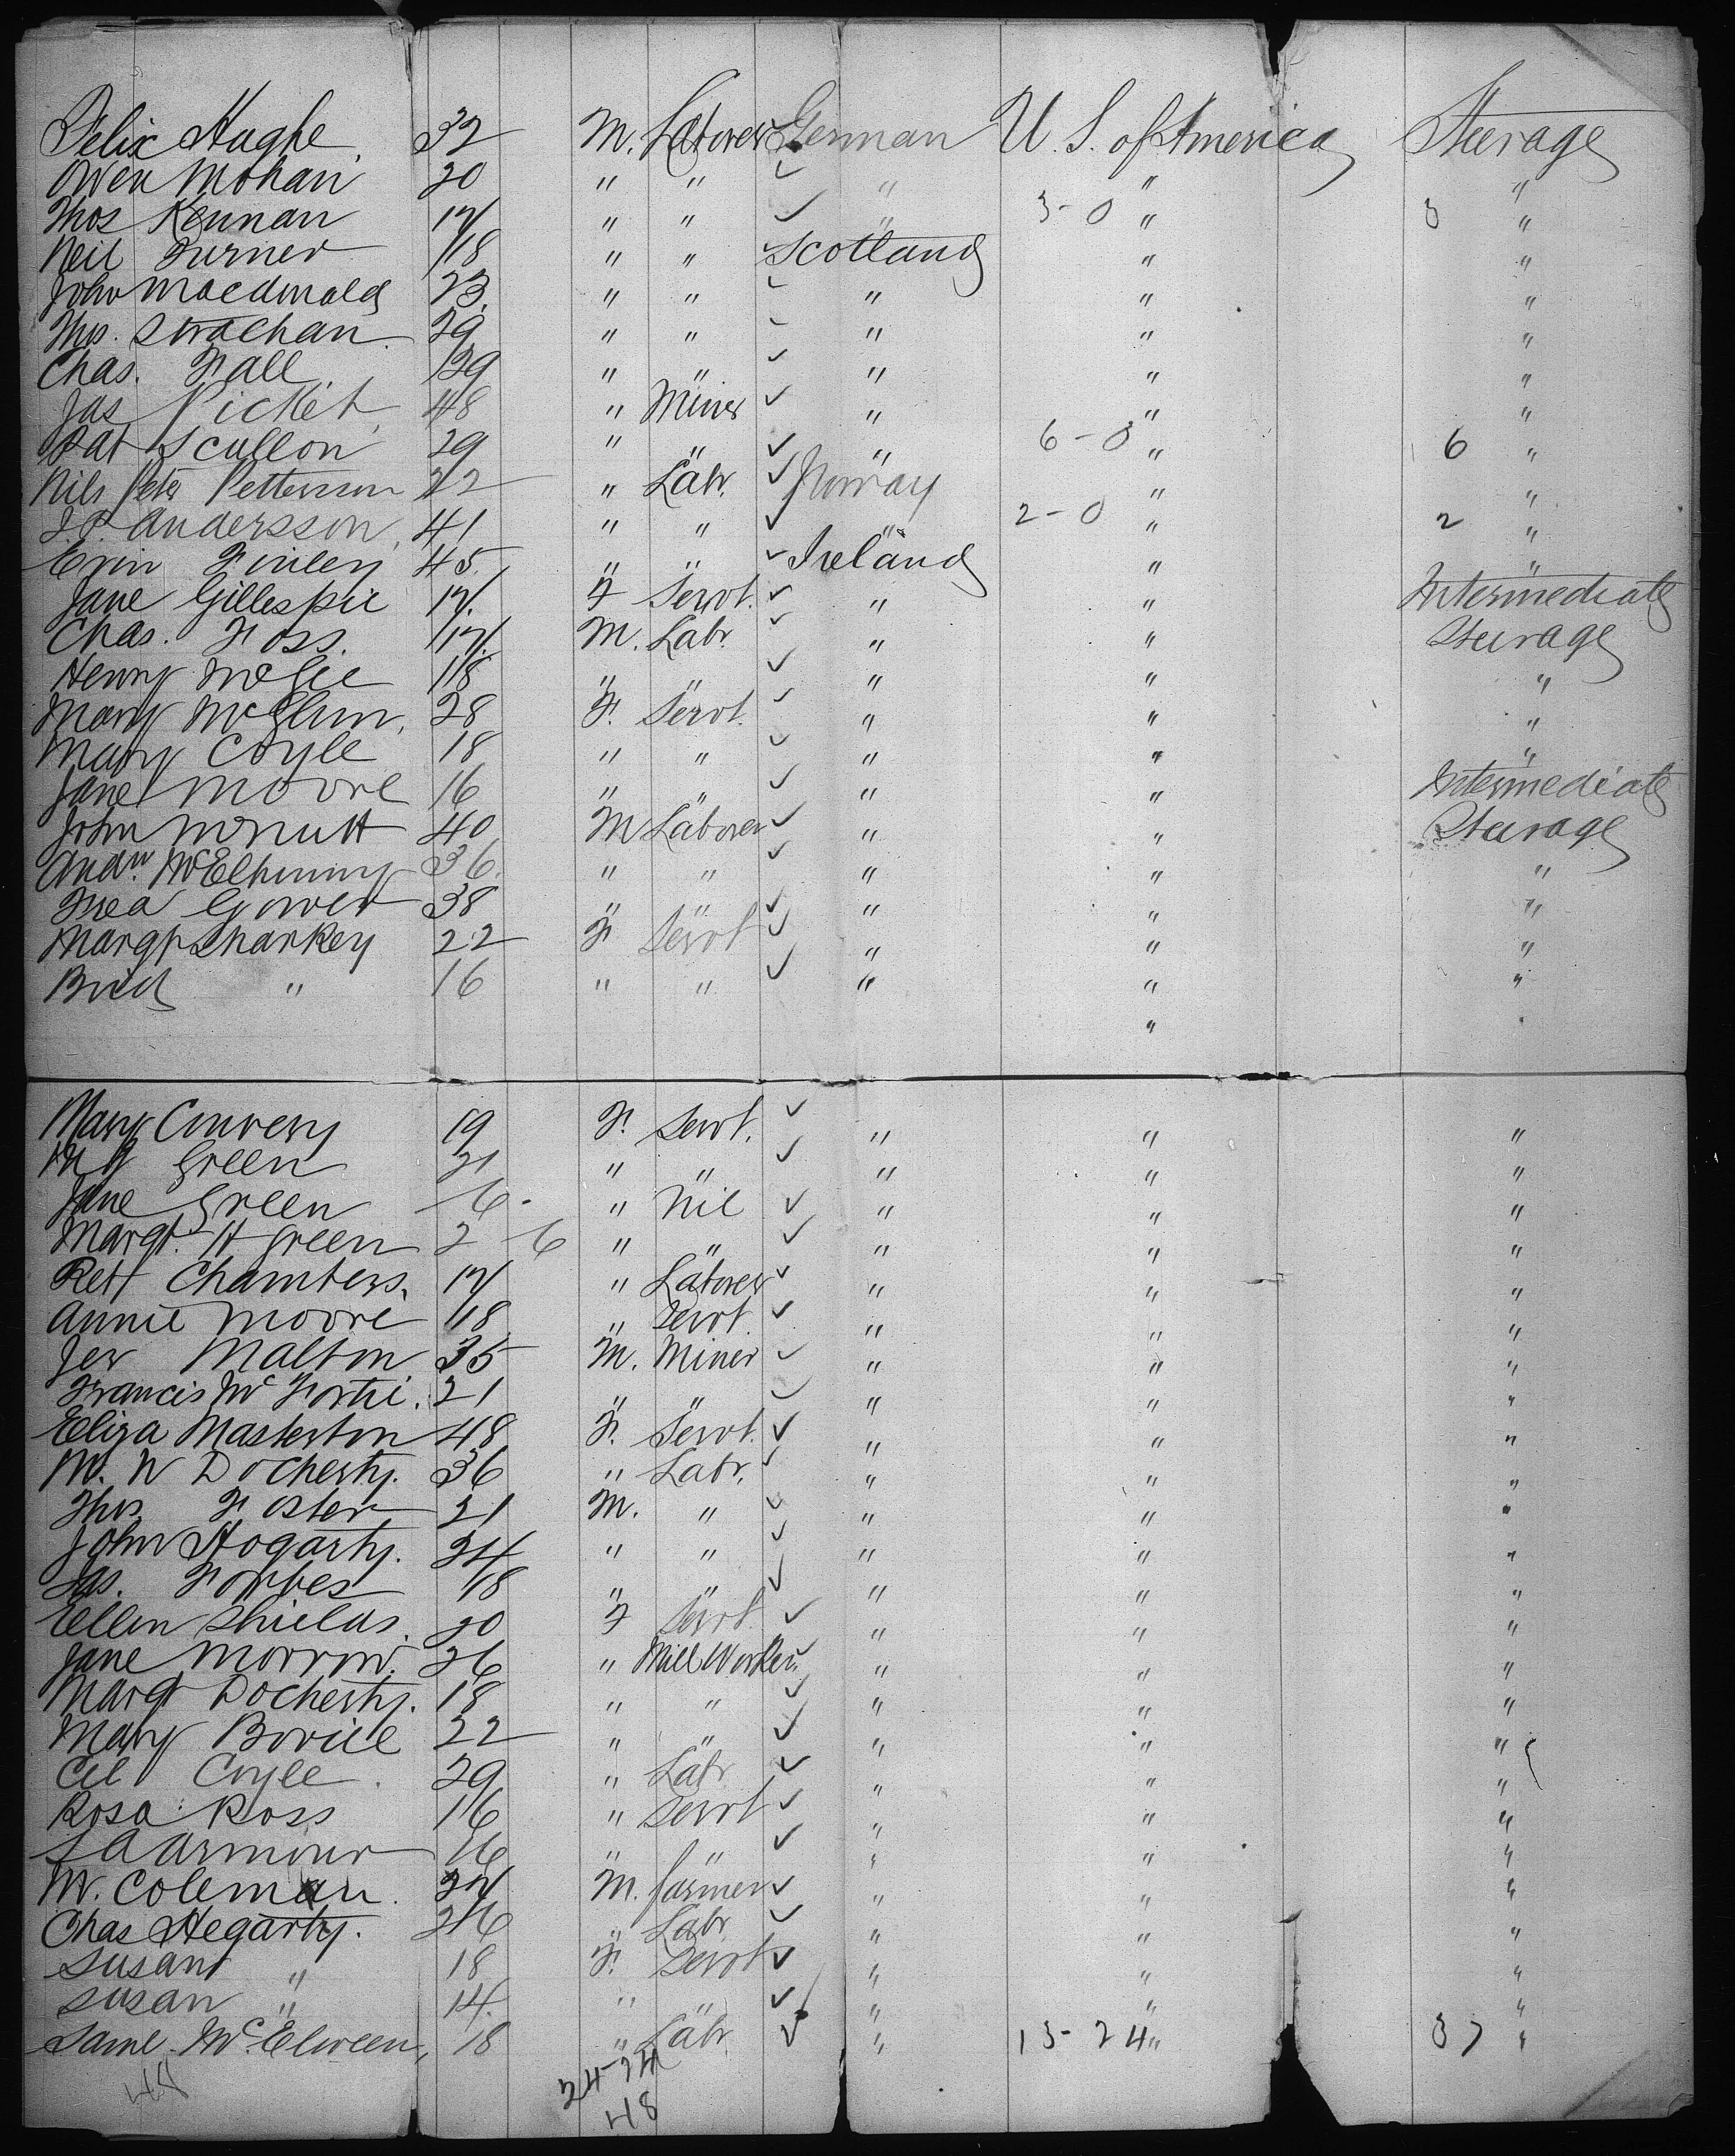 Felix Hughe 32 M. Laborer German U. S. of America Steerage
Owen Mohan 20 " " " " "
Thos Kennan 17 " " " 3-0 " 3 "
Neil Turner 18 " " Scotland " "
John Macdonald 23. " " " " "
Thos. Strachan 29 " " " " "
Chas. Fall 39 " " " " "
Jas Picket 48 " Miner " " "
Pat Scullon 29 " " " 6-0 " 6 "
Nils Peter Petterson 22 " Labr. Norway " "
J.P. Andersson, 41 " " " 2-0 " 2 "
Finley 45. " " Ireland " "
Jane Gillespie 17. F Servt. " " Intermediate
Chas. Foss. 17. M. Labr. " " Steerage
Henry McGee 18 " " " " "
Mary McGlinn, 28 F. Servt. " " "
Mary Coyle 18 " " " " "
Jane Moore 16 " " " " Intermediate
John McNutt 40 M Laborer " " Steerage
Andw. McElhinny 36. " " " " "
38 " " " " "
Margt Sharkey 22 F Servt " " "
Brid " 16 " " " " "
" "
Mary Convery 19 F. Servt. " " "
Green 21 " " " " "
Jane Green 6- " Nil " " "
Margt. H Green 2-6 " " " " "
Chambers. 17 " Laborer " " "
Annie Moore 18 " Servt. " " "
Jer Malton 35 M. Miner " " "
Francis Mc 21 " " " " "
Eliza Masterton 48 F. Servt. " " "
M. W Docherty. 36 " Labr. " " "
Thos. Foster 21 M. " " " "
John Hogarty. 24 " " " " "
Jas. Forbes 18 " " " " "
Ellen Shields. 20 F Servt. " " "
Jane Morrow. 26 " Mill Worker " " "
Margt Docherty. 18 " " " " "
Mary 22 " " " " "
Coyle. 29 " Labr " " "
Rosa Ross 16 " Servt " " "
Armour 16 " " " " "
M. Coleman. 27 M. farmer " " "
Chas Hegarty. 26 " Labr " " "
Susan " 18 F. Servt " " "
Susan " 14. " " " " "
Saml. McElween, 18 " Labr. " 13-24 " 37 "
48 24-24
48